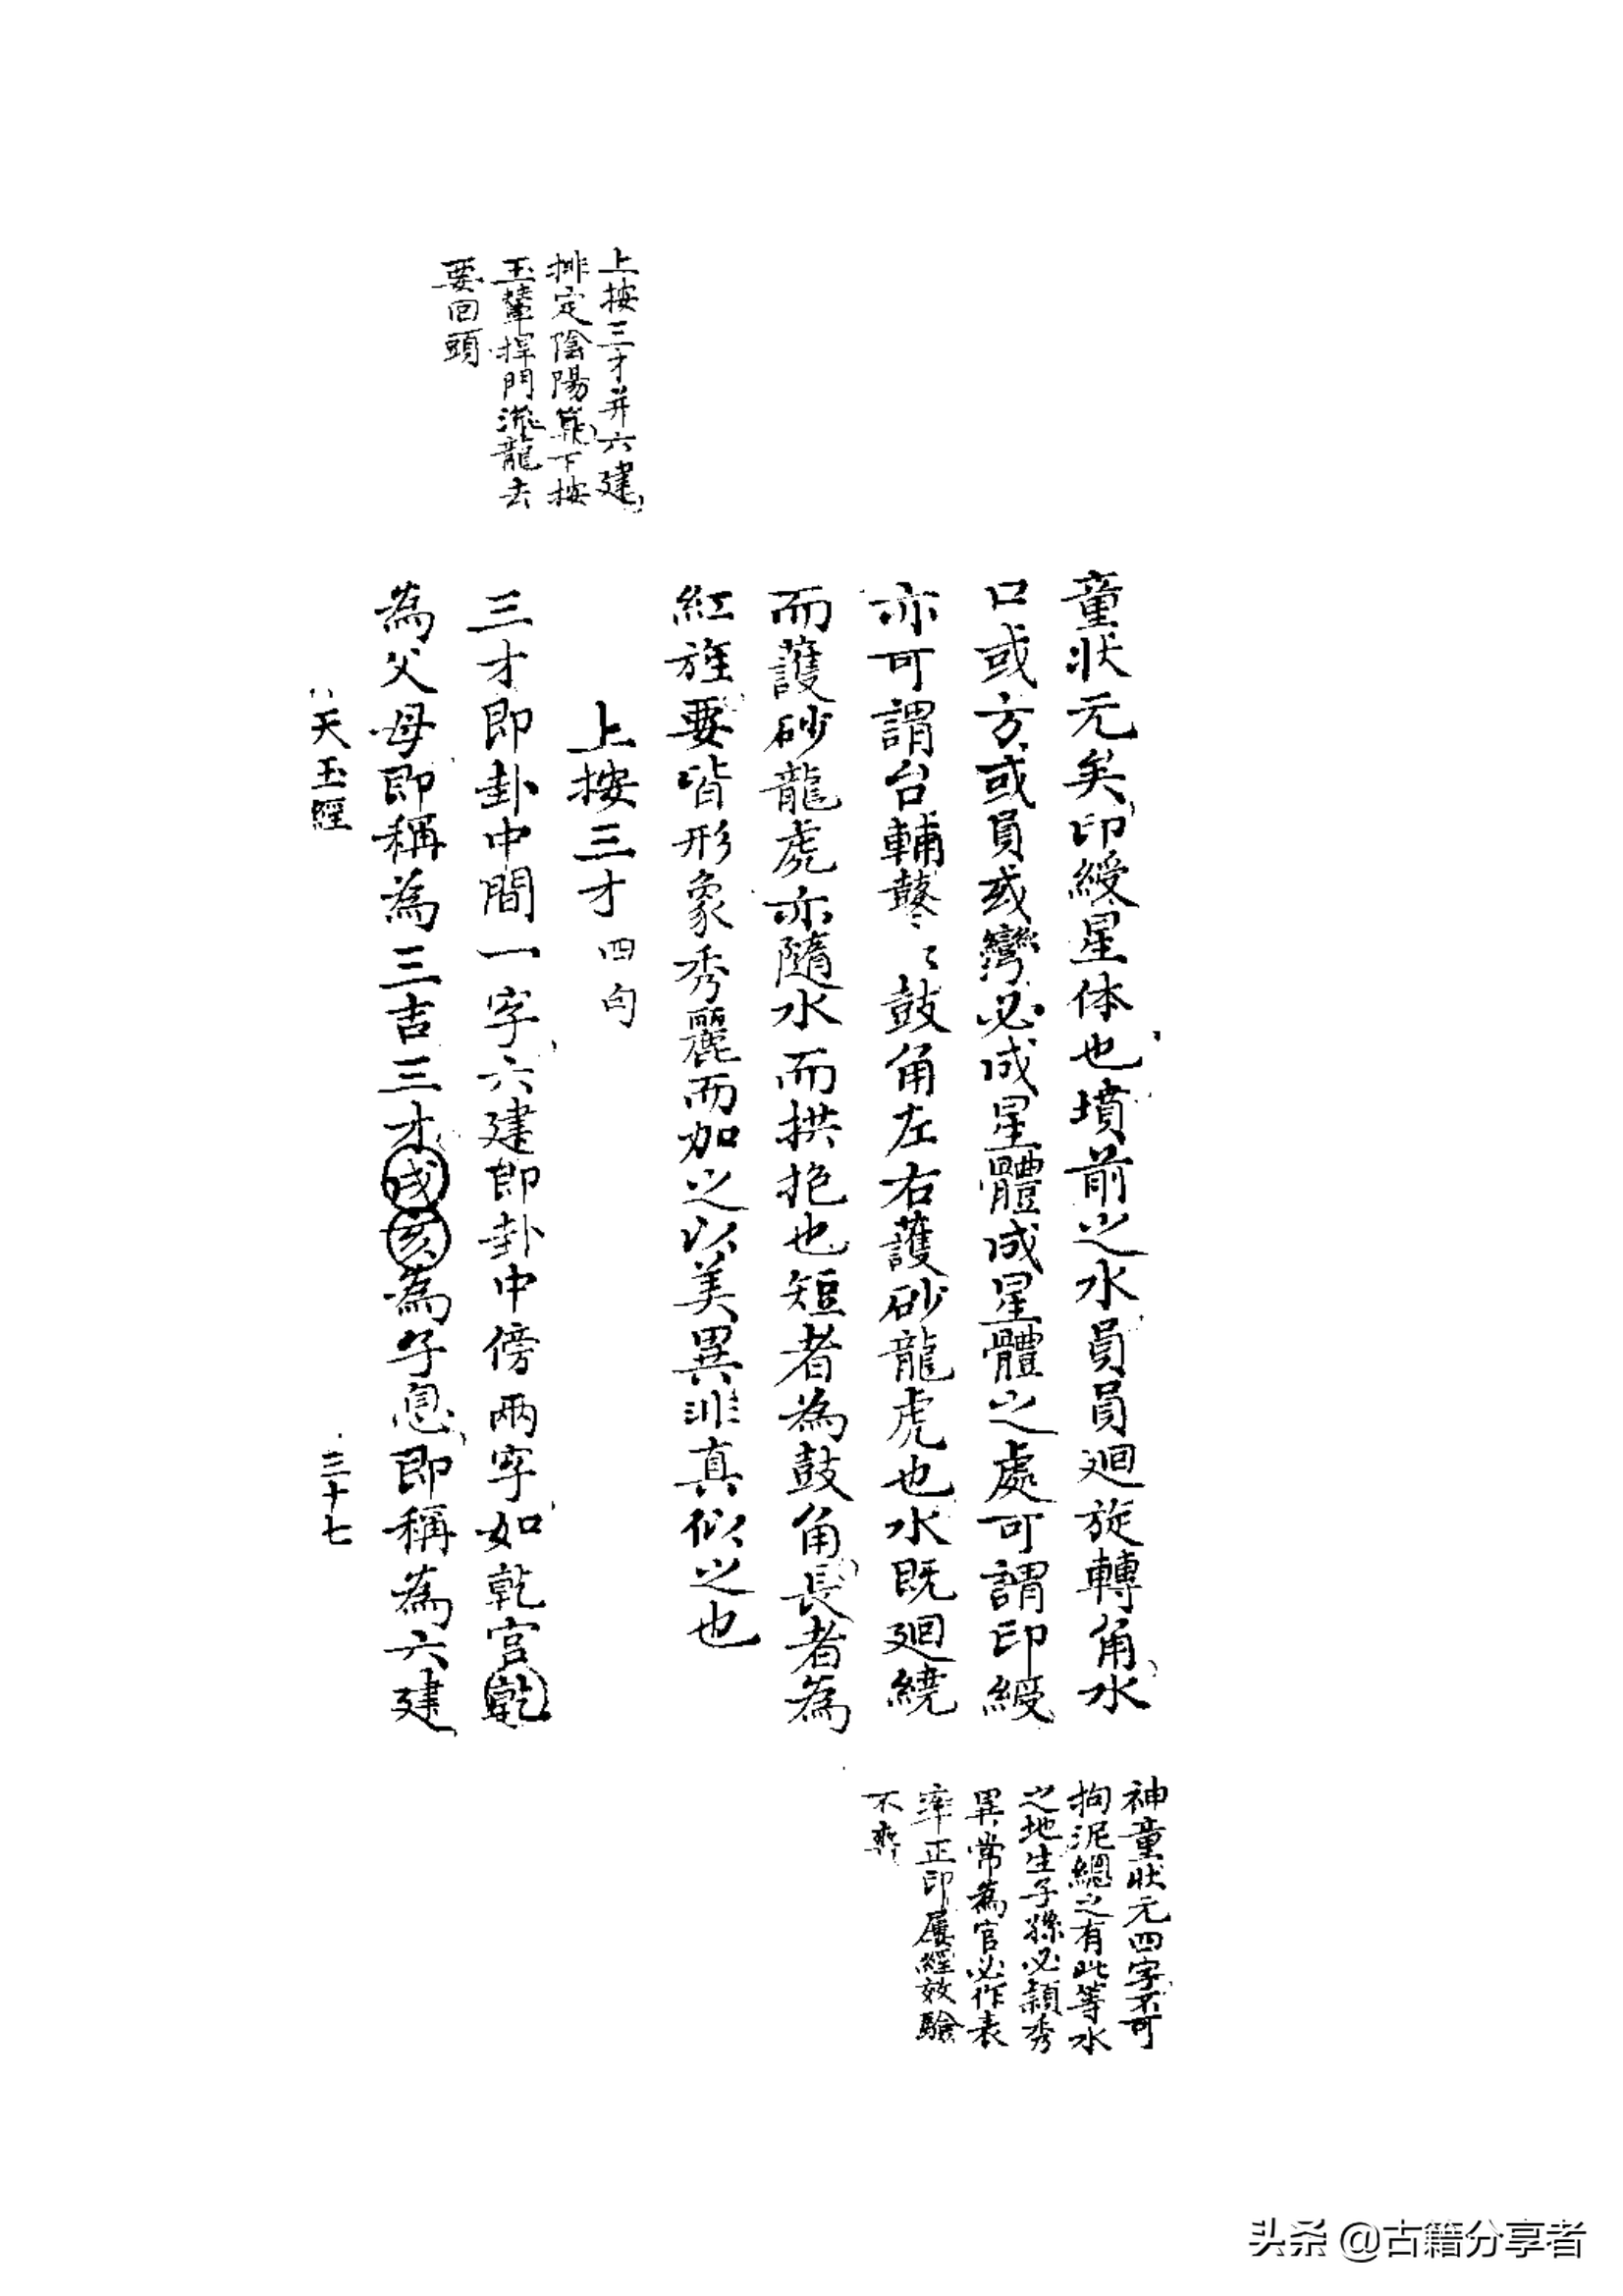 童状元矣印綬星体也墳前之水員員廻旋轉角水
口或方或員或彎必成星體成星體之處可謂印綬
亦可謂台輔鼕〻鼓角左右護砂龍虎也水既廻繞
而護砂龍虎亦隨水而拱抱也短者為鼓角長者為
紅旌要皆形象秀麗而加之以美異非真似之也
上按三才四句
三才即卦中間一字六建即卦中傍兩字如乾宫乾
為父母即稱為三吉三才戌亥為子息即稱為六建
天玉經
三十七
上按三才并六建
排定陰陽算下按
玉輦捍門流龍去
要回頭
神童狀元四字不可
拘泥總之有此等水
之地生子孫必穎秀
異常為官必作表
率正印屢經效驗
不爽
头条 @古籍分享者